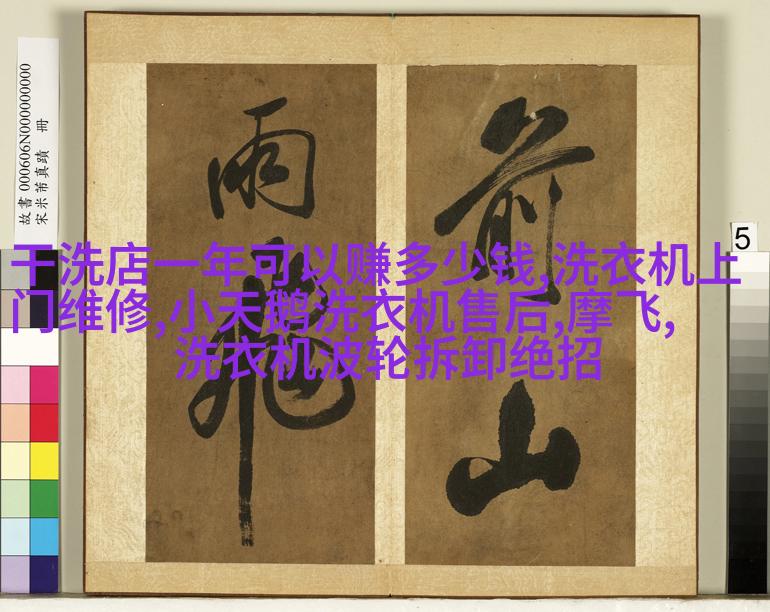 故書 000606N000000000
宋米芾真蹟 冊
前山
雨飛
5
干洗店一年可以赚多少钱,洗衣机上
门维修,小天鹅洗衣机售后,摩飞,
洗衣机波轮拆卸绝招